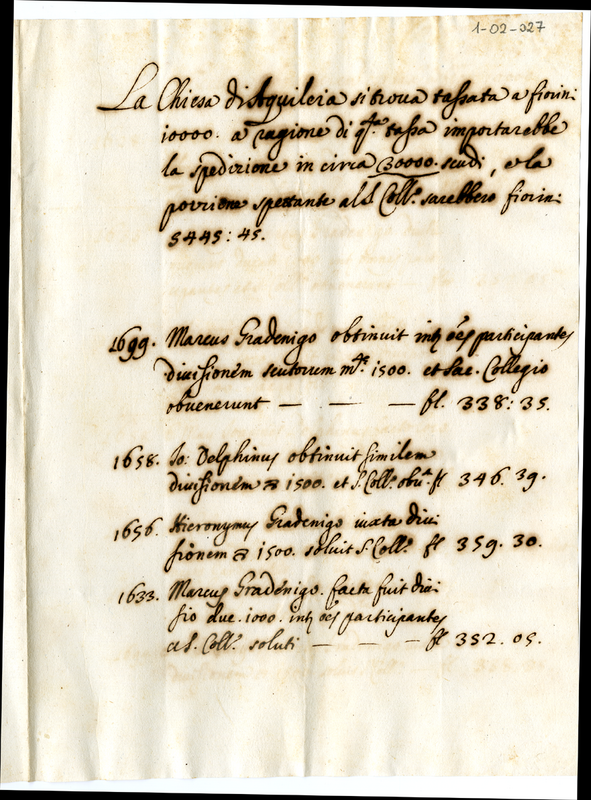 1-02-027
La Chiesa di Aquileia si trova tassata a fiorini
10000. a ragione di q.ta tassa importarebbe
la spedizione in circa 30000. scudi, e la
porzione spettante al S. Coll.o sarebbero fiorini
5445: 45.
1699. Marcus Gradenigo obtinuit intr oes participantes
divisionem scutorum m.tæ 1500. et Sac. Collegio
obvenerunt — — — fl. 338: 35.
1658. Jo: Delphinus obtinuit similem
divisionem 1500. et S. Coll.o obu.t fl 346. 39.
1656. Hieronymus Gradenigo iuxta divi
sionem 1500. soluit S. Coll.o fl 359. 30.
1633. Marcus Gradenigo. facta fuit divi
sio duc. 1000. intr oes participantes
ac S. Coll.o soluti — — — fl 352. 05.